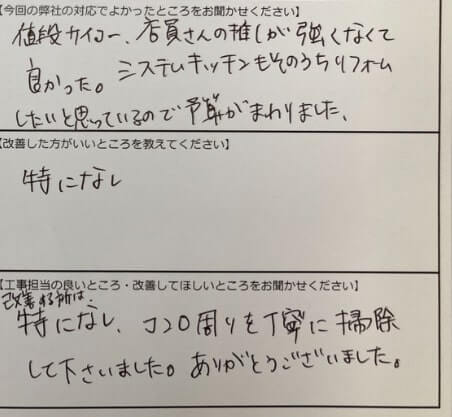 【今回の弊社の対応でよかったところをお聞かせください】
値段サイコー、店員さんの推しが強くなくて
良かった。システムキッチンもそのうちリフォーム
したいと思っているので予算がまわりました、
【改善した方がいいところを教えてください】
特になし
【工事担当の良いところ・改善してほしいところをお聞かせください】
改善する所は、
特になし、コンロ周りを丁寧に掃除
して下さいました。ありがとうございました。